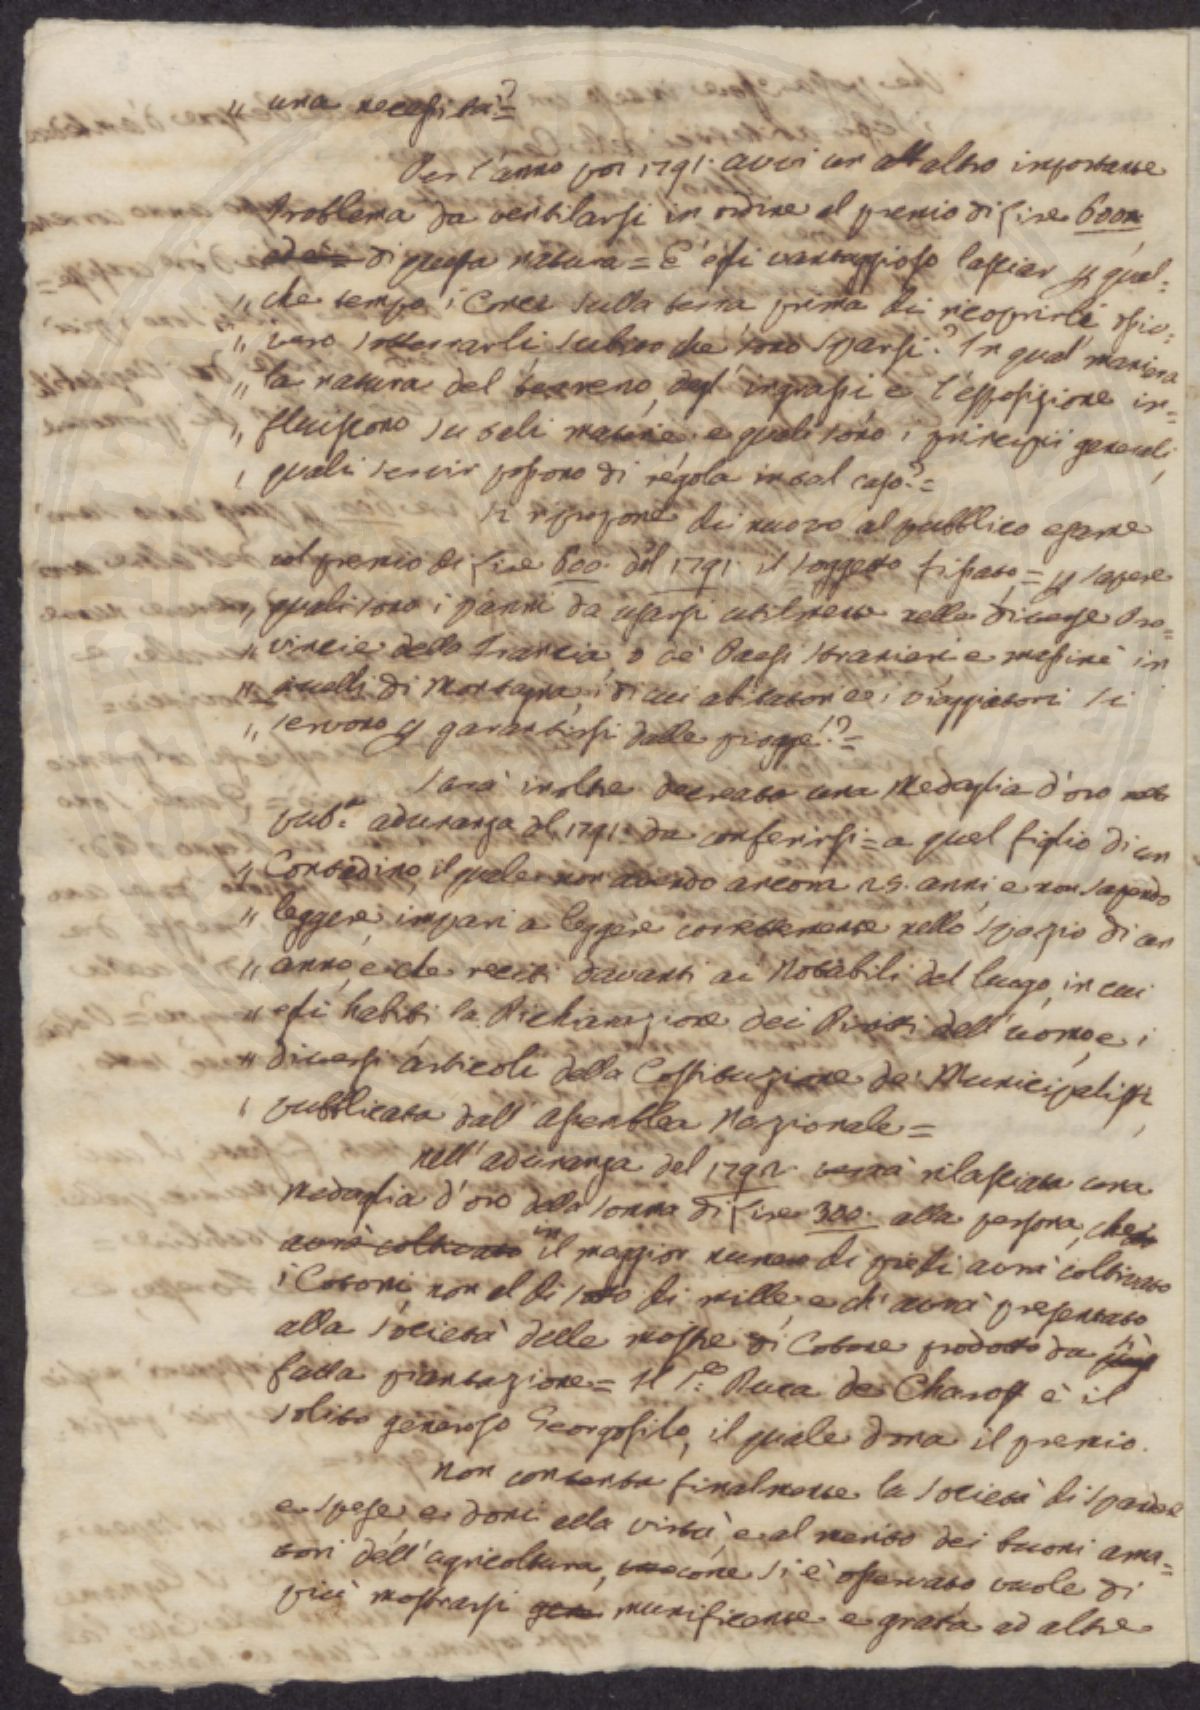 " una necessità?=
Per l'anno poi 1791. avvi un altro importante
Problema da ventilarsi in ordine al premio di Lire 600
ed è = di questa natura = È egli vantaggioso lasciar p qual=
" che tempo i Conci sulla terra prima di ricoprirli oppu=
" vero sotterrarli subito che sono sparsi? In qual maniera
" la natura del terreno, degl'ingrassi e l'esposizione in=
" fluiscono su tali materie, e quali sono i principii generali,
" quali servir possono di regola in tal caso?=
Si ripropone di nuovo al pubblico esame
col premio di Lire 600. del 1791. il soggetto fissato, = p sapere
" quali sono i panni da usarsi utilmente nelle diverse Pro=
" vincie della Francia, o ne' Paesi stranieri e massime in
" quelli di Montagna, di cui abitatori e i viaggiatori si
" servono p garantirsi dalle piogge?=
Sarà inoltre decretata una Medaglia d'oro
pub.ca adunanza del 1791. da conferirsi = a quel figlio di un
" Contadino, il quale non avendo ancora 25. anni, e non sapendo
" leggere, impari a leggere correttamente nello spazio di un
" anno, e che reciti davanti ai Notabili del luogo, in cui
" egli habiti la Dichiarazione dei Diritti dell'uomo e i
" diversi articoli della Costituzione de' Municipalisti,
" pubblicata dall'assemblea Nazionale =
Nell'adunanza del 1792. verrà rilasciata una
Medaglia d'oro della somma di Lire 300. alla persona, che
avrà coltivato in il maggior numero di piedi avrà coltivato
i Cotoni, non al di sotto di mille, e ch'avrà presentato
alla società delle mostre di Cotone prodotto da
fatta piantazione = Il S.r Duca de Charost è il
solito generoso Georgofilo, il quale dona il premio.
Non contenta finalmente la società di spandere
e spese e doni alla virtù, e al merito dei buoni ama=
tori dell'agricoltura, come si è osservato vuole di
più mostrarsi munificente e grata ad altre